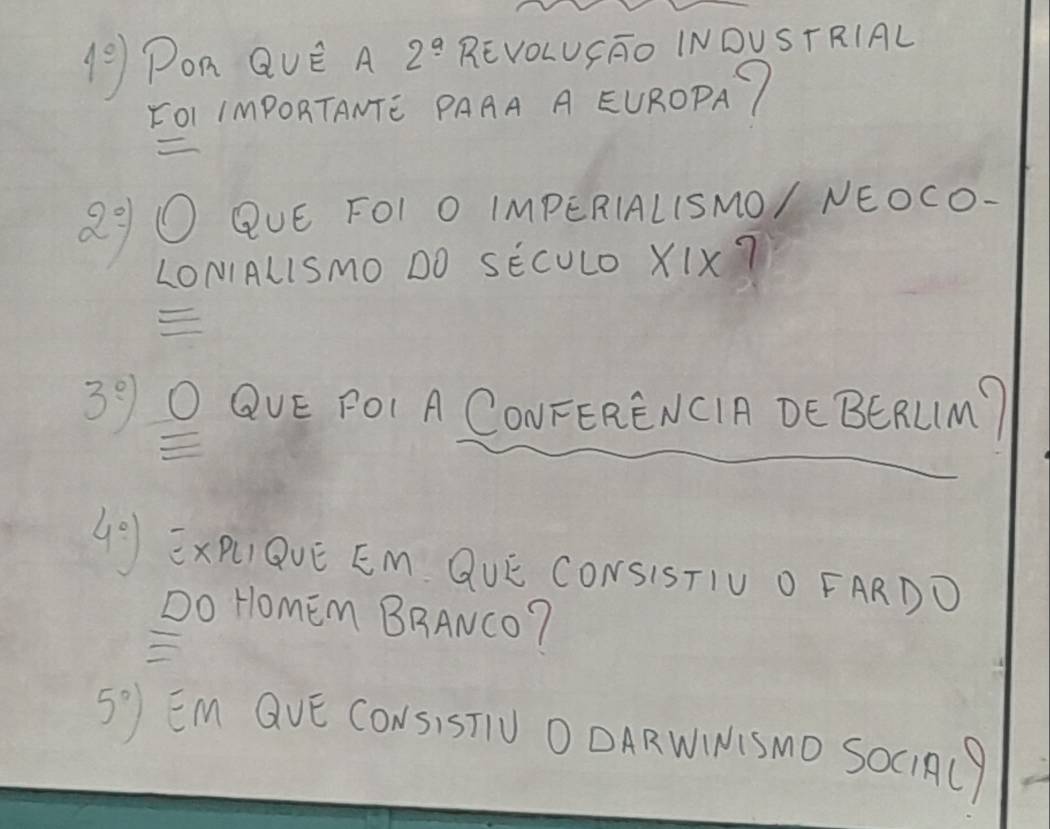 1º) POR QUÊ A 2ª REVOLUÇÃO INDUSTRIAL
FOI IMPORTANTE PARA A EUROPA?
2º) O QUE FOI O IMPERIALISMO/ NEOCO-
LONIALISMO DO SÉCULO XIX?
3º) O QUE FOI A CONFERÊNCIA DE BERLIM?
4º) EXPLIQUE EM QUE CONSISTIU O FARDO
DO HOMEM BRANCO?
5º) EM QUE CONSISTIU O DARWINISMO SOCIAL?